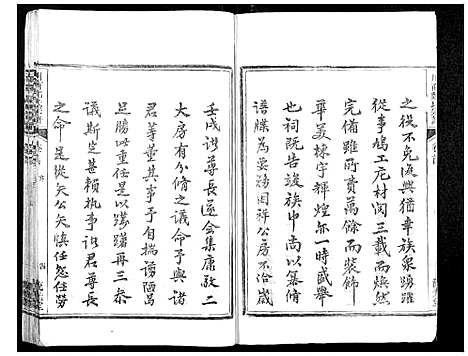 之從不免復興猶幸族衆踴躍
從事鳩工庀材閱三載而煥然
完備雖所費萬餘而裝飾
華美棟宇輝煌亦一時盛舉
也祠既告竣族中尚以纂脩
譜牒為要務因祥公房不洽歲
壬戌諸尊長遂會集康敬二
大房有分脩之議命予與諸
君等董其事予自揣謭陋曷
足勝此重任是以躊躇再三叅
議斯定甚賴執事諸君尊長
之命是從矢公矢慎任怨任勞